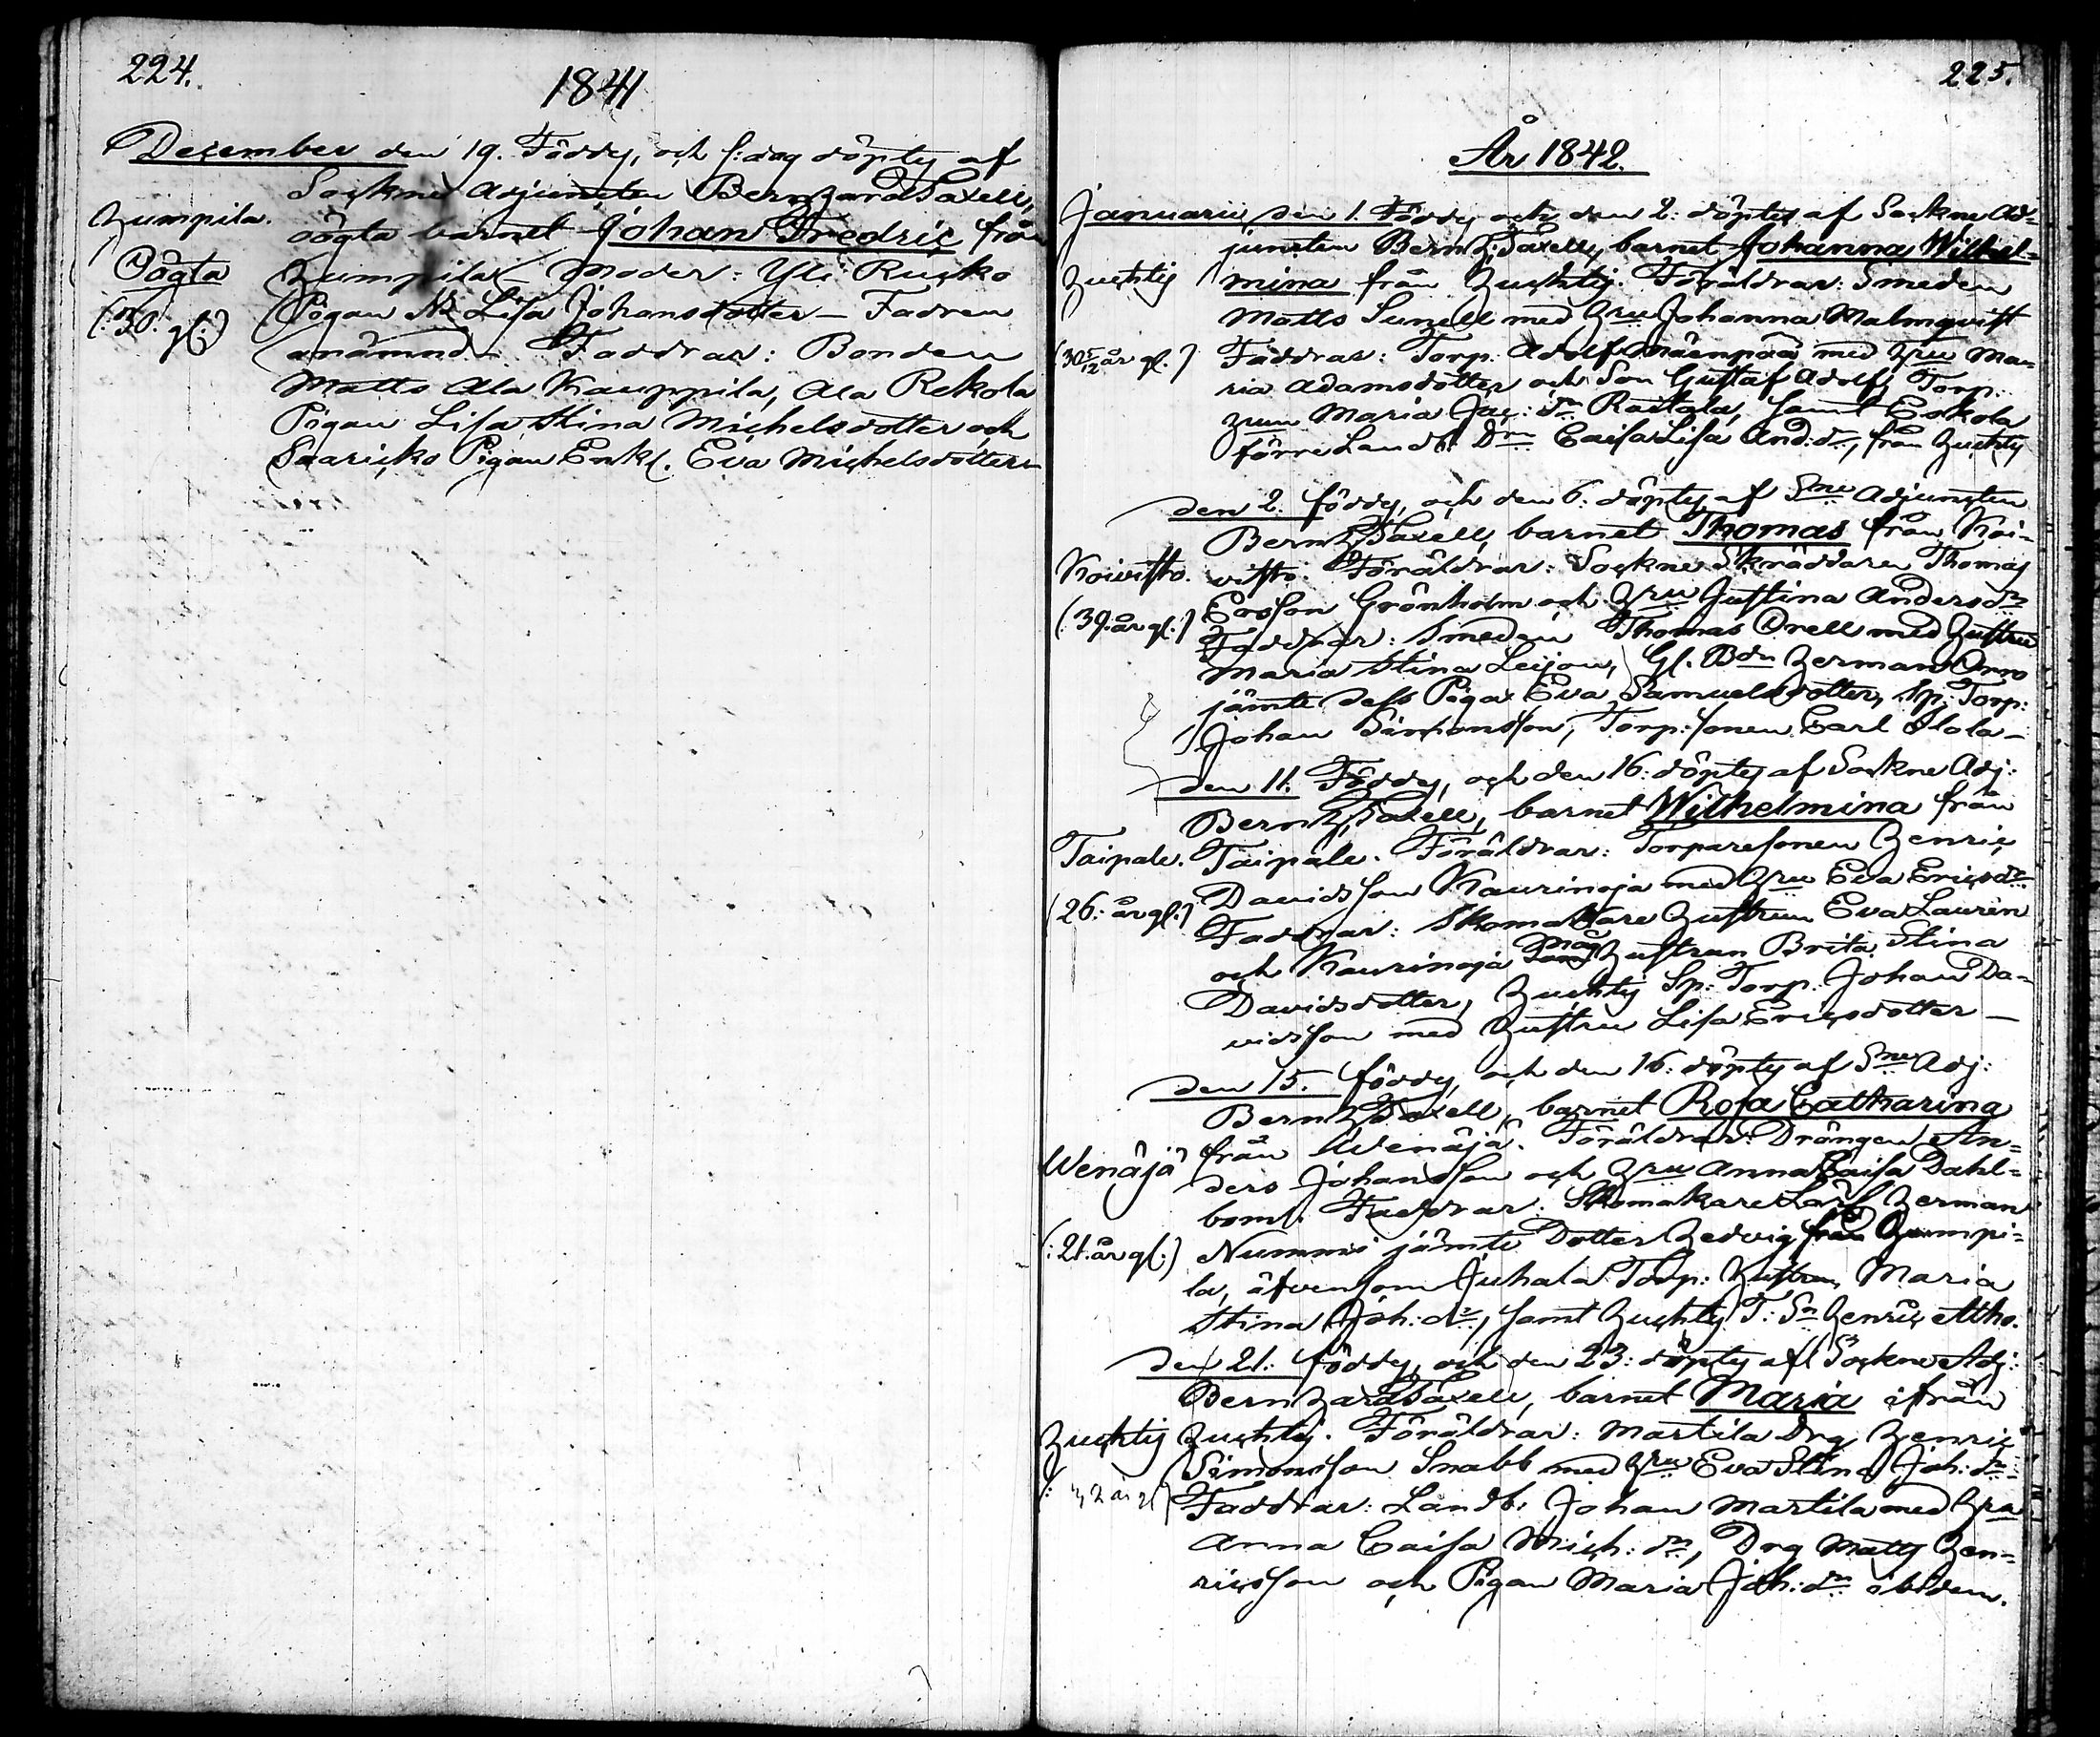 224.
1841
December den 19. Föddes, och s: dag döptes af
Sockne Adjuncten Bernhard Taxell,
Humpila.
oögta barnet Johan Fredric från
Oögta
Humpila. Moder: Yli Rusko
(: 30. gl:)
Pigan Lisa Johansdotter – Fadren
onämnd. – Faddrar: Bonden
Matts Ala Kauppila, Ala Rekola
Pigan Lisa Stina Michelsdotter och
Saaricko Pigan Enkl. Eva Michelsdotter
225.
År 1842.
Januarii den 1. Föddes och den 2: döptes af Sockne Ad-
juncten Bernh: Taxell, barnet Johanna Wilhel-
Huchtis
mina från Huchtis. Föräldrar: Smeden
Matts Sunell med Hru Johanna Malmqvist
(30 5/12 år gl.)
Faddrar: Torp: Adolf Mäenpää med Hru Ma-
ria Adamsdotter och Son Gustaf Adolf, Torp:
hrun Maria Jac: dr Raitala, samt Eskola
förre Landb: Dr Caisa Lisa And: dr, från Huchtis
den 2. föddes, och den 6. döptes af Sne Adjuncten
Bernh Taxell, barnet Thomas från Koi-
Koivisto.
visto. Föräldrar: Sockne Skräddaren Thomas
(: 39. år gl:)
Ersson Grönholm och Hru Justina Andersdr
Faddrar: Smeden Thomas Orell med Hustru
Maria Stina Leijon, Gl. Bdn Herman Orro
jämte dess Piga Eva Samuelsdotter, Sp: Torp:
Johan Simonsson, Torp: sonen Carl Alola –
den 11. Föddes, och den 16: döptes af Sockne Adj:
Bernh: Taxell, barnet Wilhelmina från
Taipale.
Taipale. Föräldrar: Torparesonen Henric
(26: år gl:)
Davidsson Kaurinoja med Hru Eva Ericsdr
Faddrar: Skomakare Hustrun Eva Lauren
och Kaurinoja Måg Hustrun Brita Stina
Davidsdotter, Huchtis Sp: Torp: Johan Da-
vidsson med Hustru Lisa Ericsdotter –
den 15. föddes, och den 16: döptes af Sne Adj:
Bernh Taxell, barnet Rosa Catharina
Wenäjä
från Wenäjä. Föräldrar: Drängen An-
ders Johansson och Hru Anna Caisa Dahl-
bom. Faddrar: Skomakare Lärl Herman
(: 21. år gl:)
Nummi jämte Dotter Hedvig från Humpi-
la, äfvensom Juhala Torp: Hustrun Maria
Stina Joh: dr, samt Huchtis T: Sn Henric Attho.
den 21: föddes, och den 23: döptes af Sockne Adj:
Bernhard Taxell, barnet Maria ifrån
Huchtis
Huchtis. Föräldrar: Martila Drg Henric
Simonsson Snabb med Hru Eva Stina Joh: dr
Faddrar: Landb: Johan Martila med Hru
Anna Caisa Mich: dr, Drg Matts Hen-
ricsson och Pigan Maria Joh: dr ibidem.